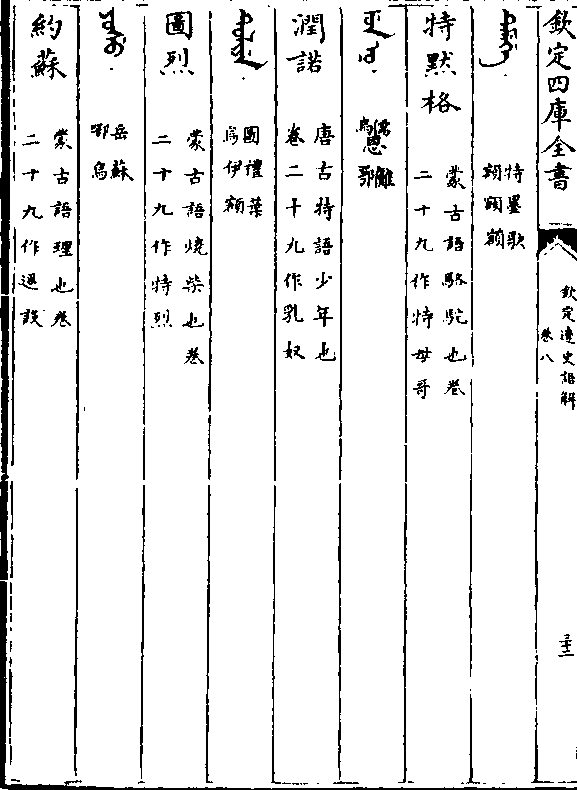 欽定四庫全書
欽定遼史語解
卷八
特墨歌
額額額
特默格
蒙古語駱駝也卷
二十九作特母哥
儒恩儺
烏 鄂
潤諾
唐古特語少年也
卷二十九作乳奴
圖禮葉
烏伊額
圖烈
蒙古語燒柴也卷
二十九作特烈
岳蘇
鄂烏
約蘇
蒙古語理也卷
二十九作遥設